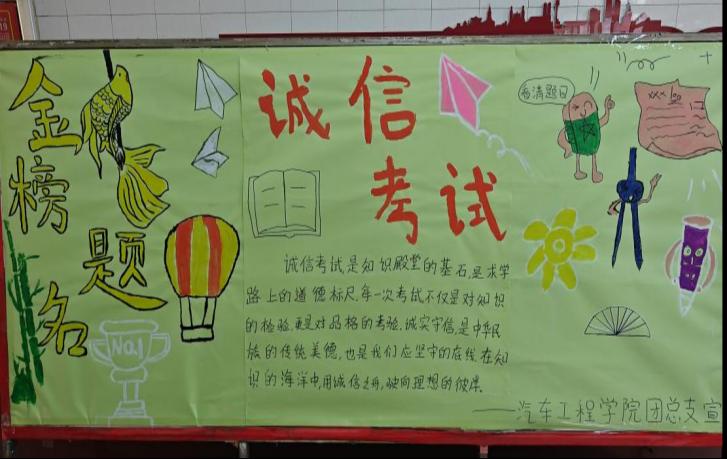 金榜题名
诚信
考试
看清题目
No.1
诚信考试是知识殿堂的基石,是求学
路上的道德标尺.每一次考试不仅是对知识
的检验.更是对品格的考验.诚实守信是中华民
族的传统美德,也是我们应坚守的在线.在知
识的海洋中,用诚信之舟,驶向理想的彼岸.
——汽车工程学院团总支宣